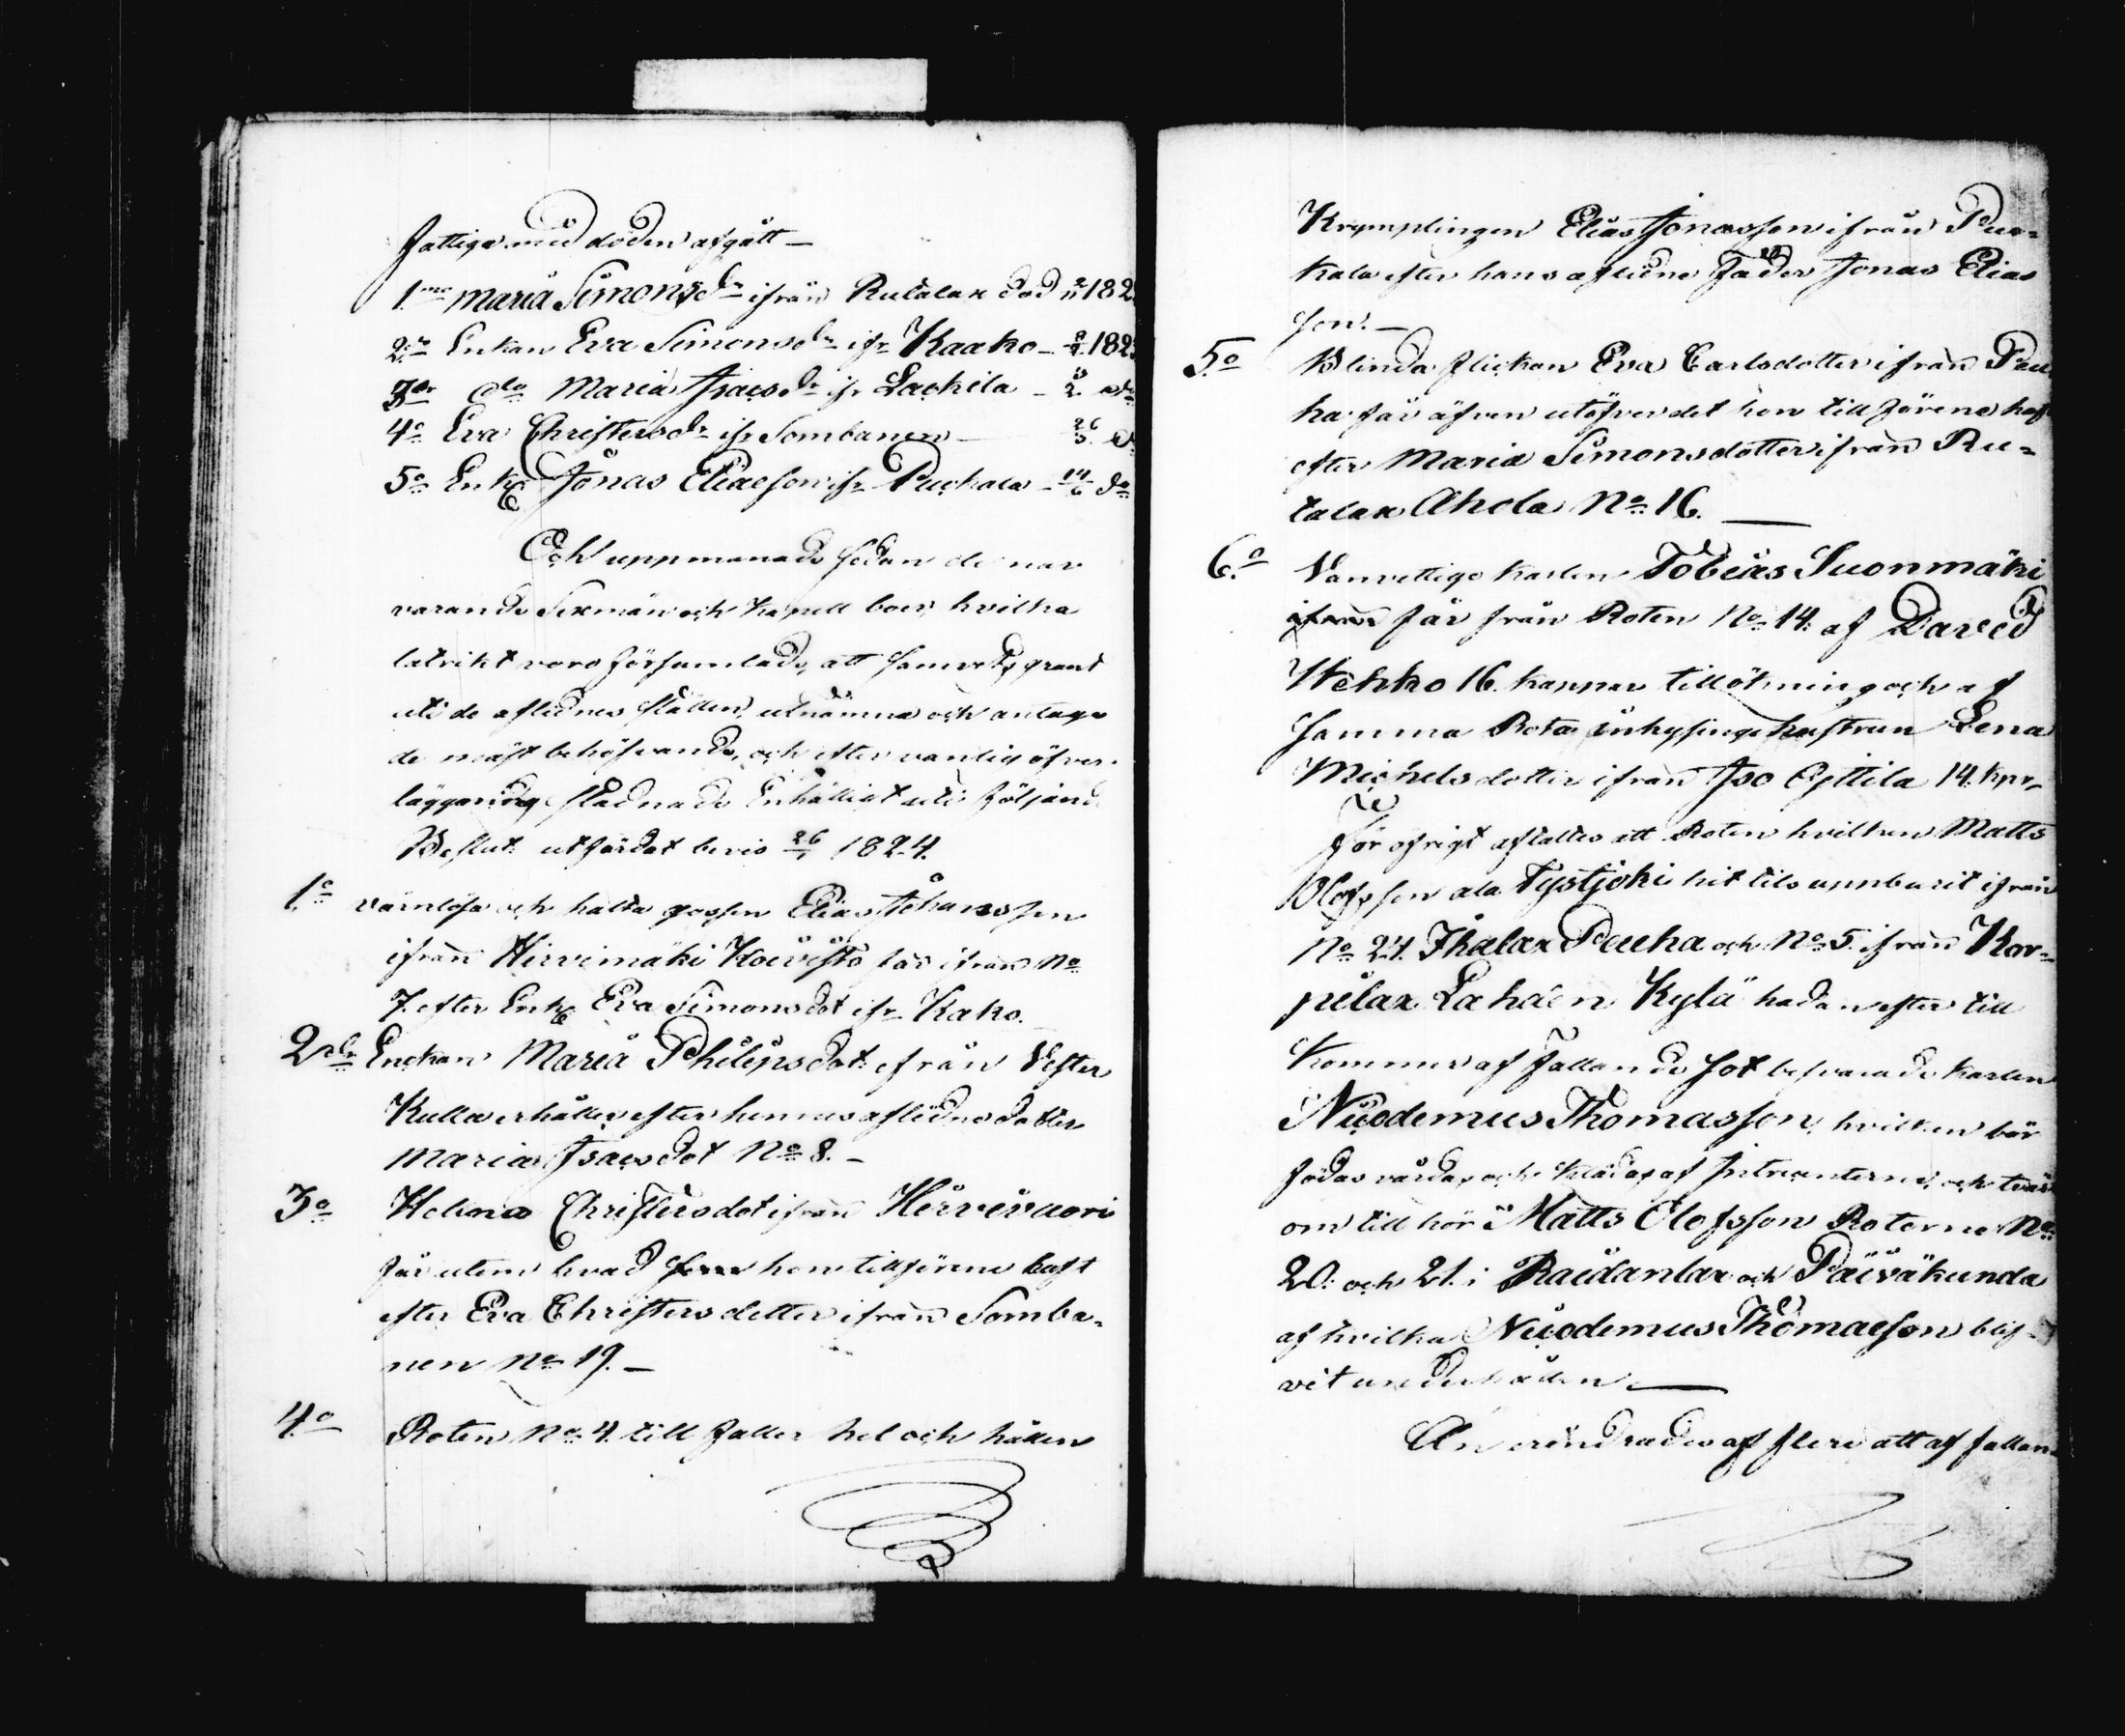 fattiga med döden afgått —
1.mo Maria Simonsdr ifrån Rutalax död 2/11 182
2.o Enkan Eva Simonsdr ifr Kaako — 182
3o do Maria Isacsdr ifr Lackila — 2. do
4o Eva Christersdr ifr Sombanen — 26/3. do
5o Enk Jonas Eliaeson ifr Puckala — 14/6 do
Och uppmanade sedan de när
varande Sexmän och Kapell boer, hvilka
talrikt voro församlade, att samvetsgrant
uti de aflidnes ställen, utnämna och antaga
de mäst behöfvande, och efter vanlig öfver
läggning stadnade Enhälligt uti följand
Beslut: utfärdat bevis 26/ 1824.
1.o värnlösa och halta gossen Elias Johansson
ifrån Hirvimäki Koivisto får ifrån No
7. efter Enk Eva Simonsdot ifr Kako.
2do Enckan Maria Philipsdot: ifrån Vester
Kulla erhåller efter hennes aflidne dotter
Maria Isacsdot No 8. —
3o Helena Christersdot ifrån Hirvivuori
får utom hvad hon tillförene haft
efter Eva Christersdotter ifrån Somba-
nen No 19. —
4.o Roten No 4. till faller hel och hållen
Krymplingen Elias Jonasson ifrån Puc-
kala efter hans aflidne Fader Jonas Elias
son. —
5.o Blinda flickan Eva Carlsdotter ifrån Pau
ha får äfven utöfver det hon till förene haf
efter Maria Simonsdotter ifrån Ru-
talax Ahola No 16. —
6.o Vanvettige karlen Tobias Suonmäki
ifrån får från Roten No 14. af David
Wehko 16. kappar tillökning och af
samma Rota inhysinge hustrun Lena
Michelsdotter ifrån Iso Ojttila 14. kpr,
För öfrigt aftaltes att Roten hvilken Matts
Olofsson ala Tystjoki hit tils uppburit ifrån
No 24. Ihalax Pauha och No 5. ifrån Kor-
pilax Lahden Kylä hädanefter till
kommer af fallande sot besvärade karlen
Nicodemus Thomasson, hvilken bör
födas vårdas och klädas af Intressenterne, och tvärt
om till hör Matts Olofsson Roterne No
20. och 21. i Raidanlax och Päiväkunda
af hvilka Nicodemus Thomaeson blif-
vit underhållen —
Än erindrades af flere att af fallan